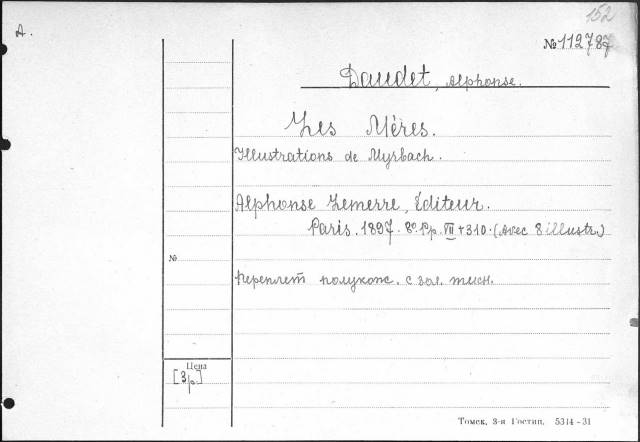 152
A.
№ 112787
Daudet, Alphonse.
Les Mères.
Illustrations de Myrbach.
Alphonse Lemerre, Éditeur.
Paris. 1897. 8º. Pp. VII + 310. (Avec 8 illustr.)
№
Переплет полукож. с зол. тисн.
Цена
[3р.]
Томск, 3-я Гостип. 5314-31